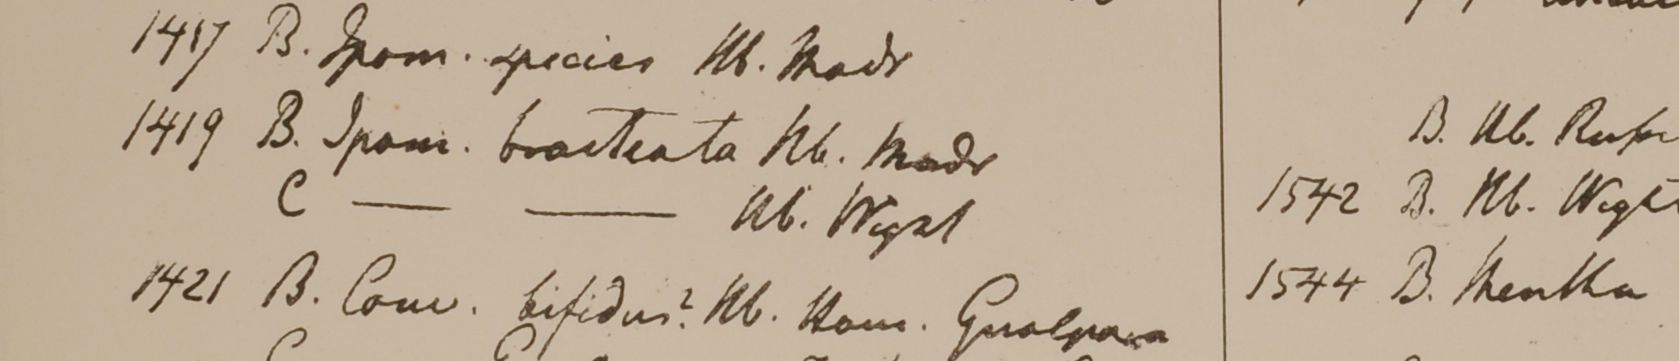 1417 B. Ipom. species Hb. Madr
1419 B. Ipom. bracteata Hb. Madr
C — — Hb. Wight
1421 B. Conv. bifidus? Hb. Ham. Gualpara
B. Hb.
1542 B. Hb. Wight
1544 B. Mentha